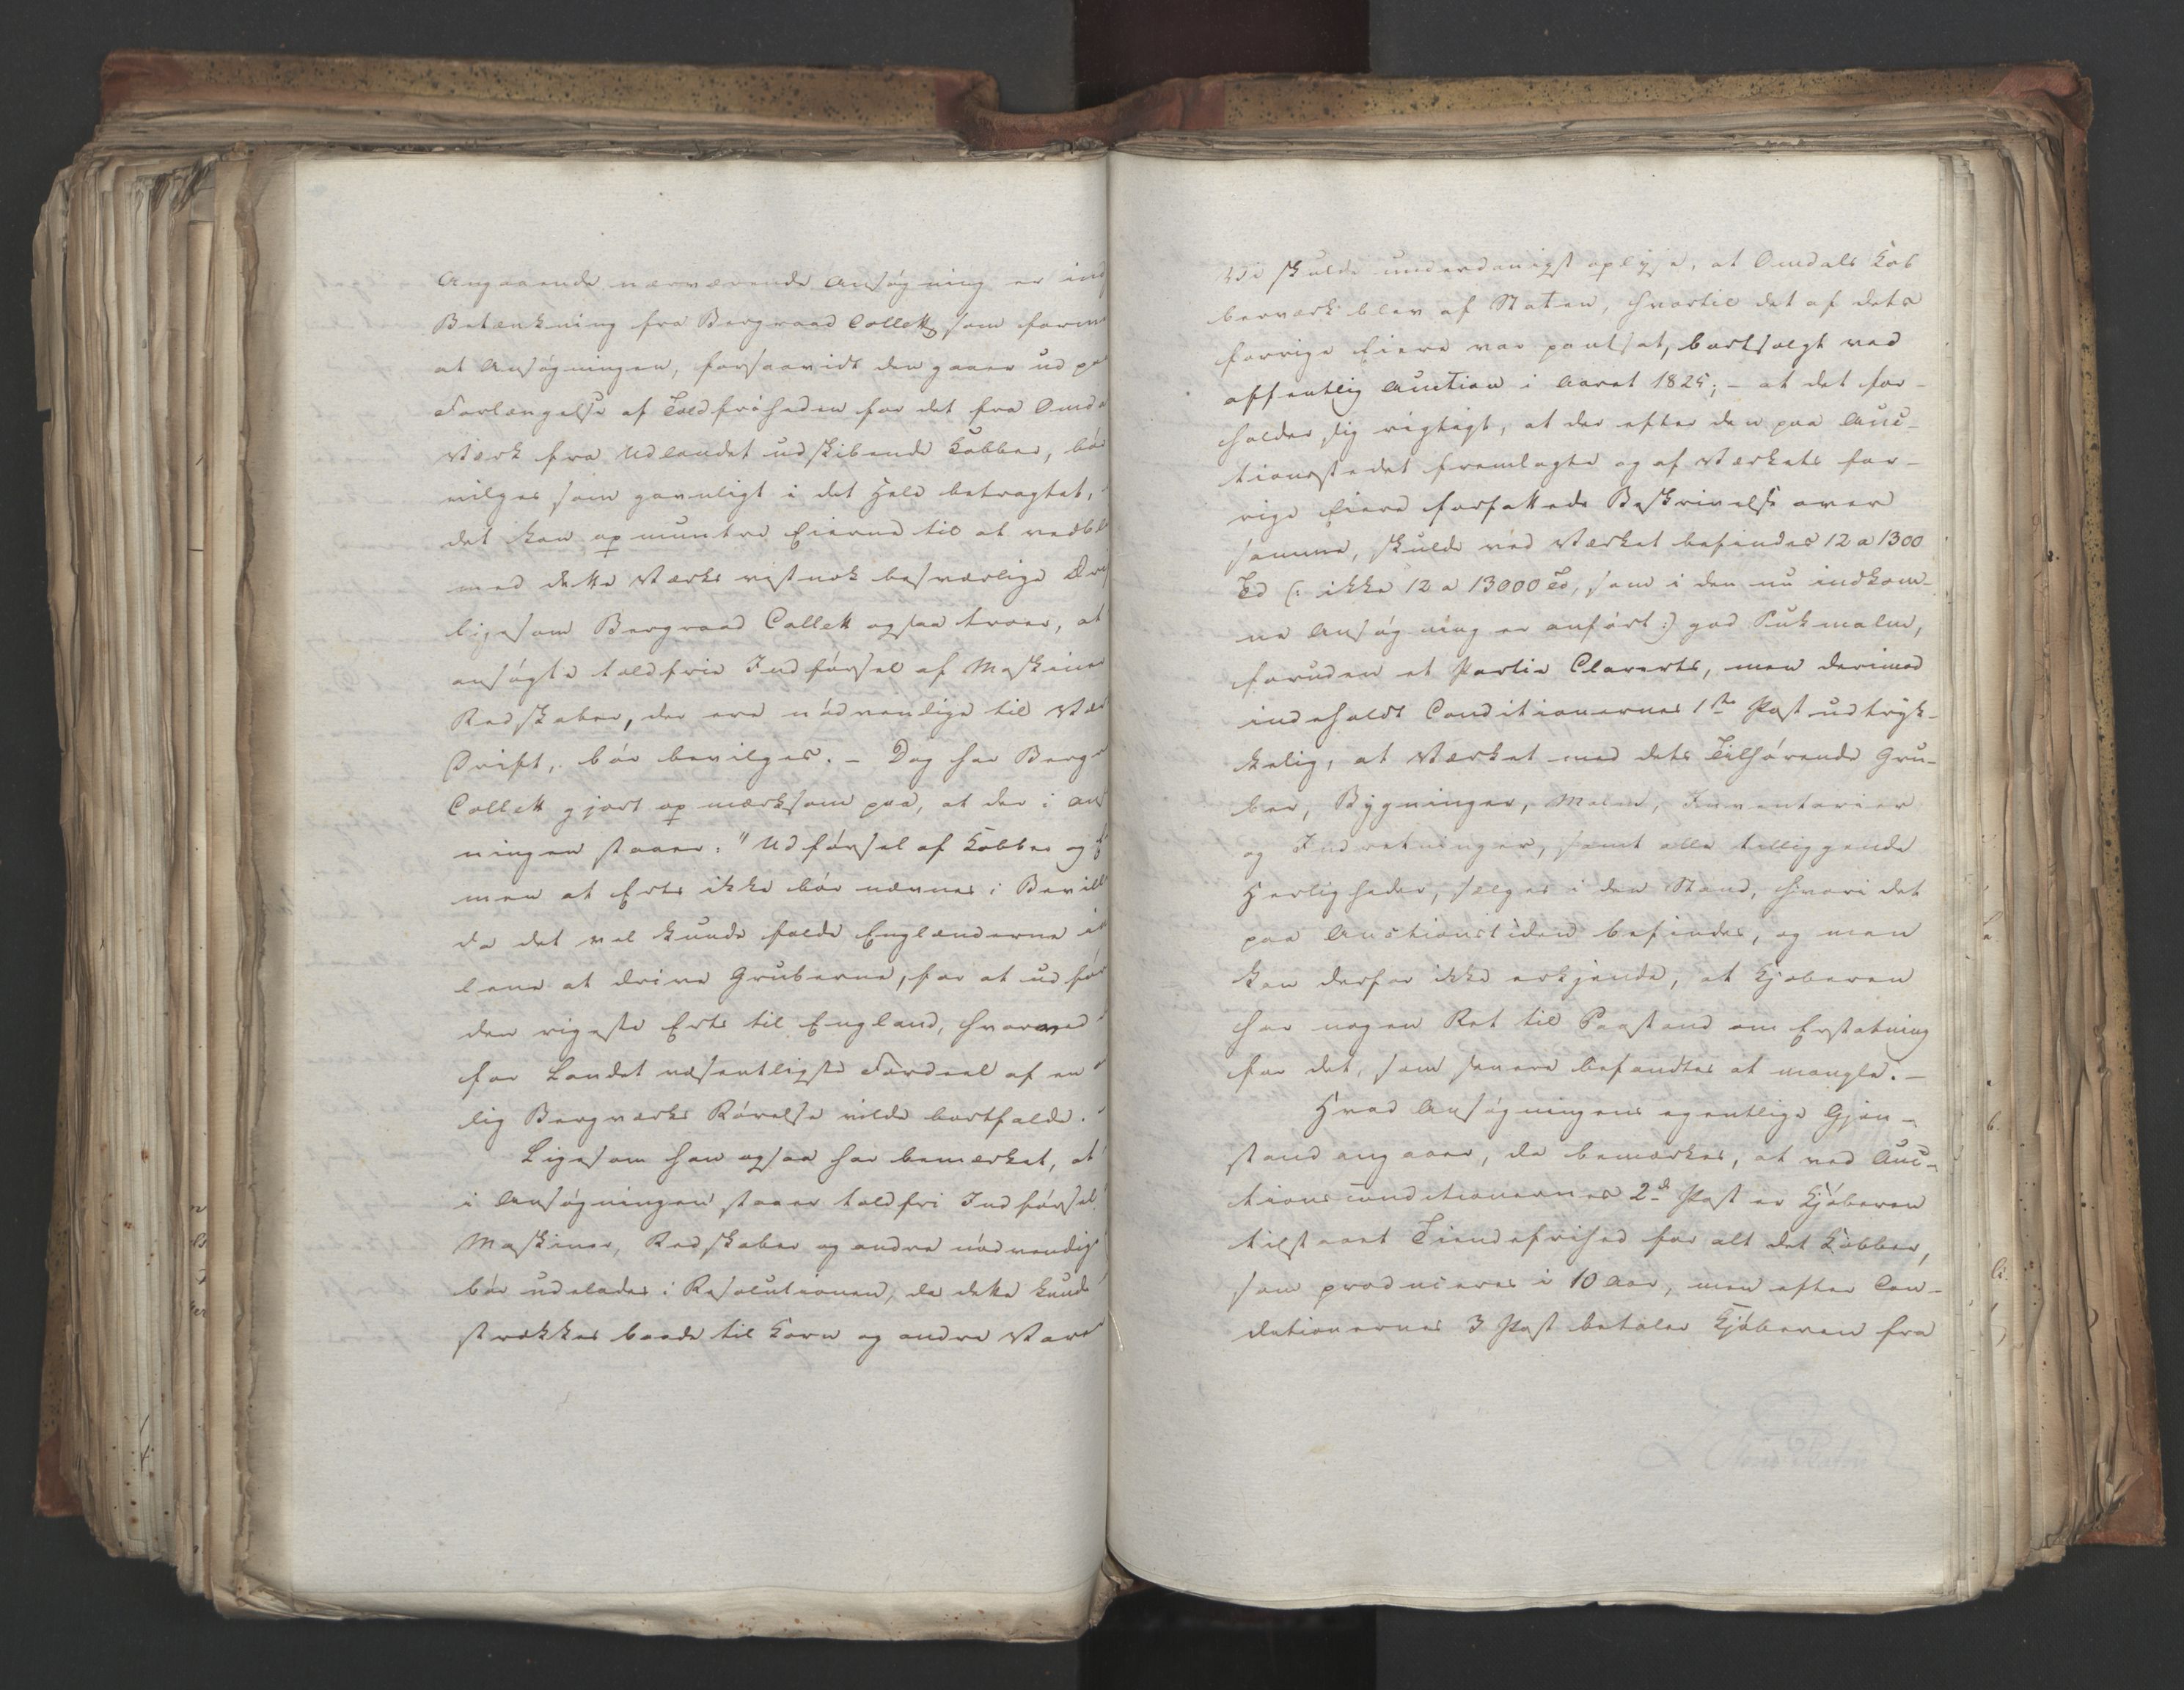 Angaaende nærværende Ansøgning er ind
Betænkning fra Bergraad Collett, som forme
at Ansøgningen, forsaavidt den gaaer ud p
Forlængelse af Toldfriheden for det fra Omda
Værk fra Udlandet udskibende Kobber, bør
vilges som gavnligt i det Hele betragtet,
det kan opmuntre Eierne til at vedbl
med dette Værks vistnok besværlige Dri
ligesom Bergraad Collett ogsaa troer, at
ansøgte toldfrie Indførsel af Maskiner
Redskaber, der ere nødvendige til Vær
Drift, bør bevilges. – Dog har Bergr
Collett gjort opmærksom paa, at der i Ans
ningen staaer: "Udførsel af Kobber og E
men at Erts ikke bør nævnes i Bevill
da det vel kunde falde Englænderne i
lene at drive Gruberne, for at udfør
den rigeste Erts til England, hvorved
for Landet væsentligste Fordeel af en
lig Bergværks Rørelse vilde bortfalde.
Ligesom han ogsaa har bemerket, at
i Ansøgningen staaer toldfri Indførsel
Maskiner, Redskaber og andre nødvendige
bør udelades i Resolutionen, da dette kunde
strækkes baade til Korn og andre Varer
Vi skulde underdanigst oplyse, at Omdals Kob
berværk blev af Staten, hvortil det af dets
forrige Eiere var pantsat, bortsolgt ved
offentlig Auction i Aaret 1825; – at det for-
holder sig rigtigt, at der efter den paa Auc-
tionsstedet fremlagte og af Værkets for-
rige Eiere forfattede Beskrivelse over
samme, skulde ved Værket befindes 12 a 1300
Td (: ikke 12 a 13000 Td, som i den nu indkom-
ne Ansøgning er anført :) god Pukmalm,
foruden et Partie Clarerts, men derimod
indeholdt Conditionernes 1ste Post udtryk-
kelig, at Værket med dets Tilhørende Gru-
ber, Bygninger, Malm, Inventarier
og Indretninger, samt alle tilliggende
Herligheder, sælges i den Stand, hvori det
paa Auctionstiden befindes, og man
kan derfor ikke erkjende, at Kjøberen
har nogen Ret til Paastand om Erstatning
for det, som senere befandtes at mangle. –
Hvad Ansøgningens egentlige Gjen-
stand angaaer, da bemærkes, at ved Auc-
tionsconditionernes 2d Post er Kjøberen
tilstaaet Tiendefrihed for alt det Kobber,
som produceres i 10 Aar, men efter Con-
ditionernes 3 Post betaler Kjøberen fra